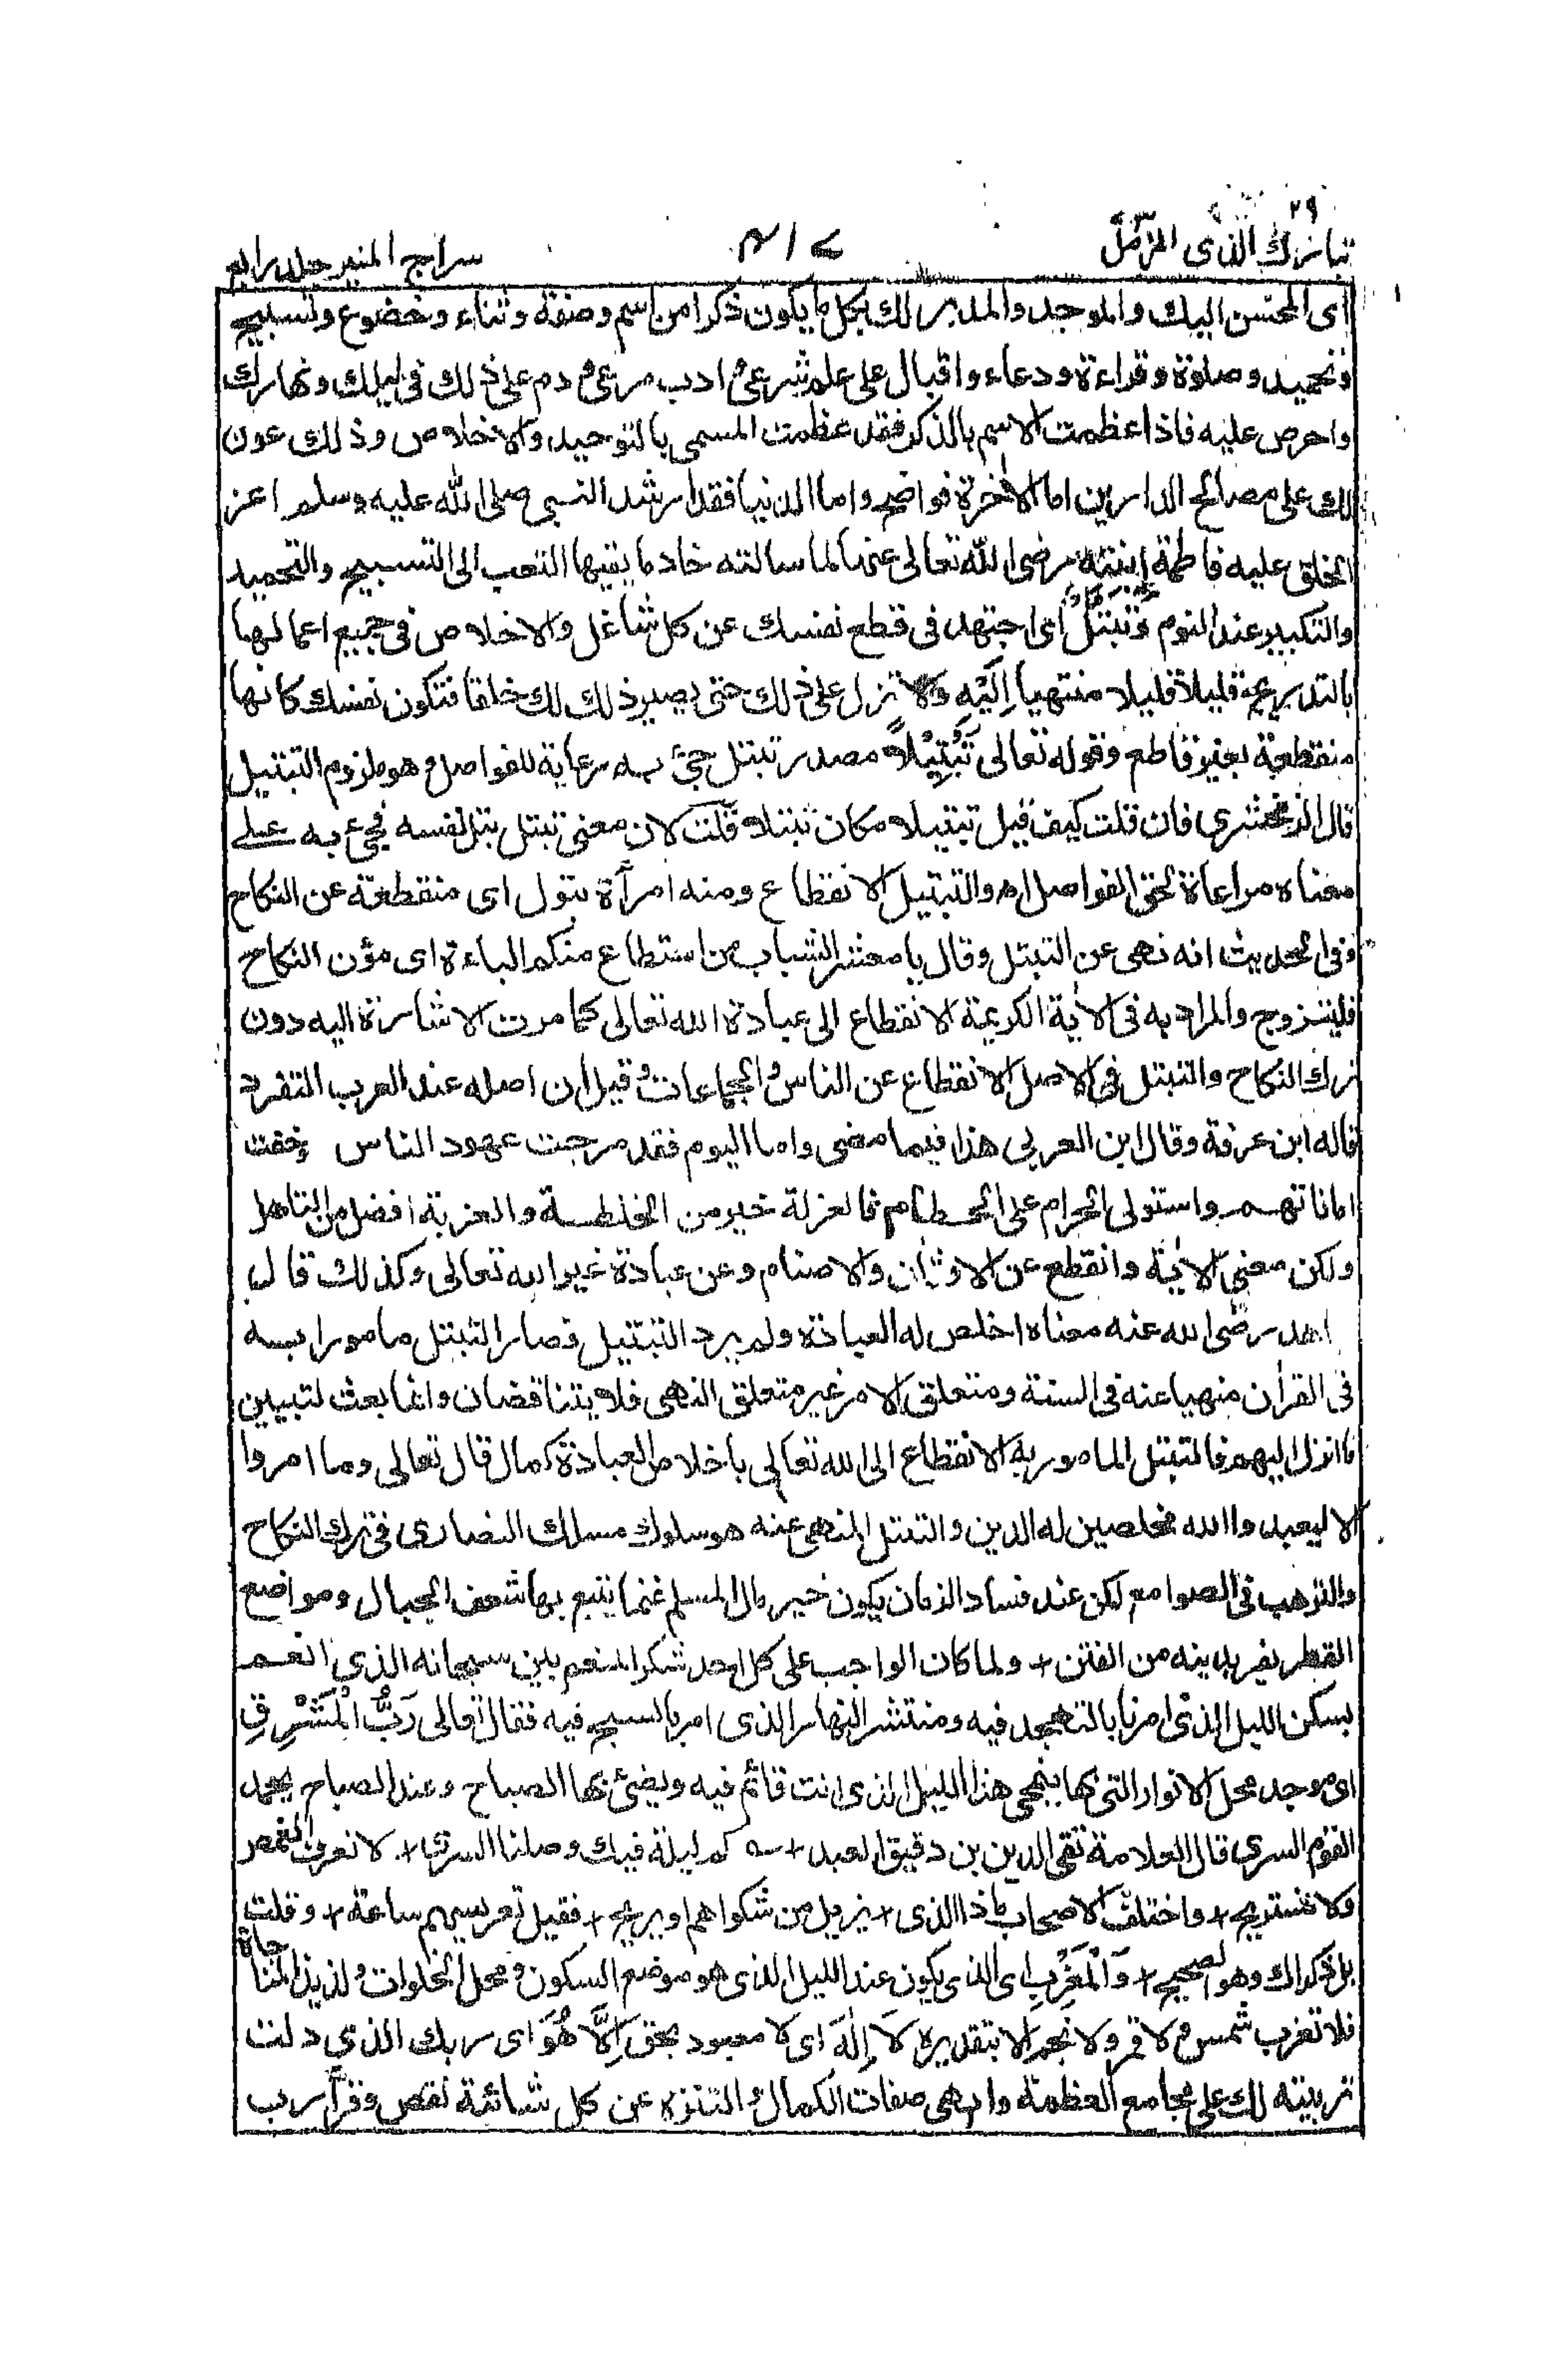 ٢٩
تبارك الذى المزمل
٤١٧
سراج المنير جلد رابع
اى المحسن اليك والموجد والمدبر لك بكل ما يكون ذكرا من اسم وصفة وثناء وخضوع وتسبيح
وتحميد وصلوة وقراءة ودعاء واقبال على علم شرعى وادب مرعى ودم على ذلك فى ليلك ونهارك
واحرص عليه فاذا عظمت الاسم بالذكر فقد عظمت المسمى بالتوحيد والاخلاص وذلك عون
لك على مصالح الدارين اما الاخرة فواضح واما الدنيا فقد ارشد النبى صلى الله عليه وسلم اعز
الخلق عليه فاطمة ابنته رضى الله تعالى عنها لما سالته خادما يقيها التعب الى التسبيح والتحميد
والتكبير عند النوم وَتَبَتَّلْ اى اجتهد فى قطع نفسك عن كل شاغل والاخلاص فى جميع اعمالها
بالتدريج قليلا قليلا منتهيا اِلَيْهِ ولا تزل على ذلك حتى يصير ذلك لك خلقا فتكون نفسك كانها
منقطعة بغير قاطع وقوله تعالى تَبْتِيْلًا مصدر تبتل جئ به رعاية للفواصل وهو ملزوم التبتيل
قال الزمخشرى فان قلت كيف قيل تبتيلا مكان تبتلا قلت لان معنى تبتل بتل نفسه فجئ به على
معناه مراعاة لحق الفواصل اه والتبتيل الانقطاع ومنه امرأة بتول اى منقطعة عن النكاح
وفى الحديث انه نهى عن التبتل وقال يا معشر الشباب من استطاع منكم الباءة اى مؤن النكاح
فليتزوج والمراد به فى الاٰية الكريمة الانقطاع الى عبادة الله تعالى كما مرت الاشارة اليه دون
ترك النكاح والتبتل فى الاصل الانقطاع عن الناس والجماعات وقيل ان اصله عند العرب التفرد
قاله ابن عرفة وقال ابن العربى هذا فيما مضى واما اليوم فقد مرجت عهود الناس وخفت
اماناتهم واستولى الحرام على الحطام فالعزلة خير من الخلطة والعزبة افضل من التاهل
ولكن معنى الاٰية وانقطع عن الاوثان والاصنام وعن عبادة غير الله تعالى وكذلك قال
رضى الله عنه معناه اخلص له العبادة ولم يرد التبتيل فصار التبتل مامورا به
فى القراٰن منهيا عنه فى السنة ومتعلق الامر غير متعلق النهى فلا يتناقضان وانما بعث لتبيين
ما انزل اليهم فالتبتل المامور به الانقطاع الى الله تعالى باخلاص العبادة كما قال تعالى وما امروا
الا ليعبدوا الله مخلصين له الدين والتبتل المنهى عنه هو سلوك مسلك النصارى فى ترك النكاح
والترهب فى الصوامع لكن عند فساد الزمان يكون خير مال المسلم غنما يتبع بها شعف الجبال ومواضع
القطر يفر بدينه من الفتن + ولما كان الواجب على كل احد شكر المنعم بين سبحانه الذى انعم
بسكن الليل الذى امرنا بالتهجد فيه ومنتشر النهار الذى امر بالسبح فيه فقال تعالى رَبُّ الْمَشْرِقِ
اى موجد محل الانوار التى بها ينمحى هذا الليل الذى انت قائم فيه ويضئ بها الصباح وعند الصباح يحمد
القوم السرى قال العلامة تقى الدين بن دقيق العيد + كم ليلة فيك وصلنا السرى + لا نعرف الغمض
ولا نستريح + واختلف الاصحاب ماذا الذى + يزيل من شكواهم او يريح + فقيل تعريسهم ساعة + وقلت
بل ذكراك وهو الصحيح + وَالْمَغْرِبِ اى الذى يكون عند الليل الذى هو موضع السكون ومحل الخلوات ولذيذ المناجاة
فلا تغرب شمس ولا قمر ولا نجم الا بتقديره لَآ اِلٰهَ اى لا معبود بحق اِلَّا هُوَ اى ربك الذى دلت
تربيته لك على مجامع العظمة وابهى صفات الكمال والتنزه عن كل شائبة نقص وقرأ رب